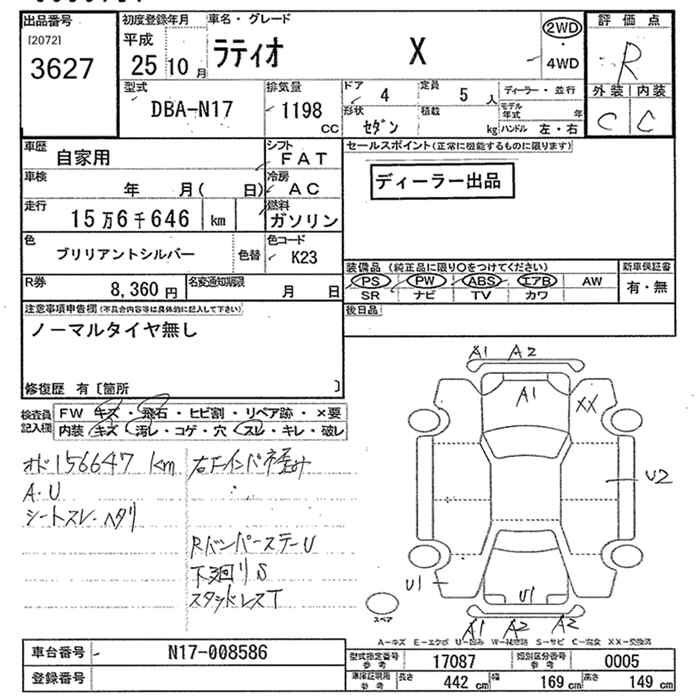 出品番号
[2072]
3627
初度登録年月
平成
25 10 月
車名・グレード
ラティオ X
2WD
・
4WD
評価点
R
外装 内装
C C
型式
DBA-N17
排気量
1198
CC
ドア
4
定員
5 人
形状
セダン
積載
kg
ディーラー・並行
モデル年式 年
ハンドル 左・右
車歴
自家用
シフト
FAT
車検
年 月( 日)
冷房
AC
走行
15万6千646 km
燃料
ガソリン
色
ブリリアントシルバー
色替
色コード
K23
R券
8,360 円
名変通知期限
月 日
セールスポイント(正常に機能するものに限ります)
ディーラー出品
装備品 (純正品に限り○をつけてください)
PS PW ABS エアB AW
SR ナビ TV カワ
新車保証書
有・無
後日品
注意事項申告欄(不具合内容等は具体的に記入して下さい)
ノーマルタイヤ無し
修復歴 有〔箇所 〕
検査員
記入欄
FW キズ・飛石・ヒビ割・リペア跡・×要
内装 キズ・汚レ・コゲ・穴・スレ・キレ・破レ
オド156647 km
A・U
シートスレ・ヘタリ
右Fインパネ歪み
Rバンパーステー U
下廻り S
スタッドレスT
A1 A2
A1
XX
U2
U1
U1
A1 A2 A2
スペア
A-キズ E-エクボ U-凹み W-補修跡 S-サビ C-腐食 XX-交換済
車台番号
N17-008586
登録番号
型式指定番号
参考
17087
類別区分番号
参考
0005
車検証現用
参考
長さ
442 cm
幅
169 cm
高さ
149 cm